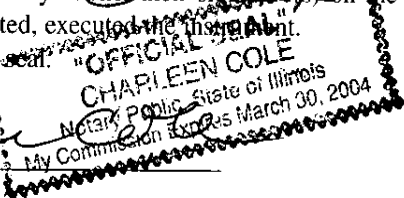 on the
ted, executed the instrument.
seal.
"OFFICIAL SEAL"
CHARLEEN COLE
Notary Public, State of Illinois
My Commission Expires March 30, 2004